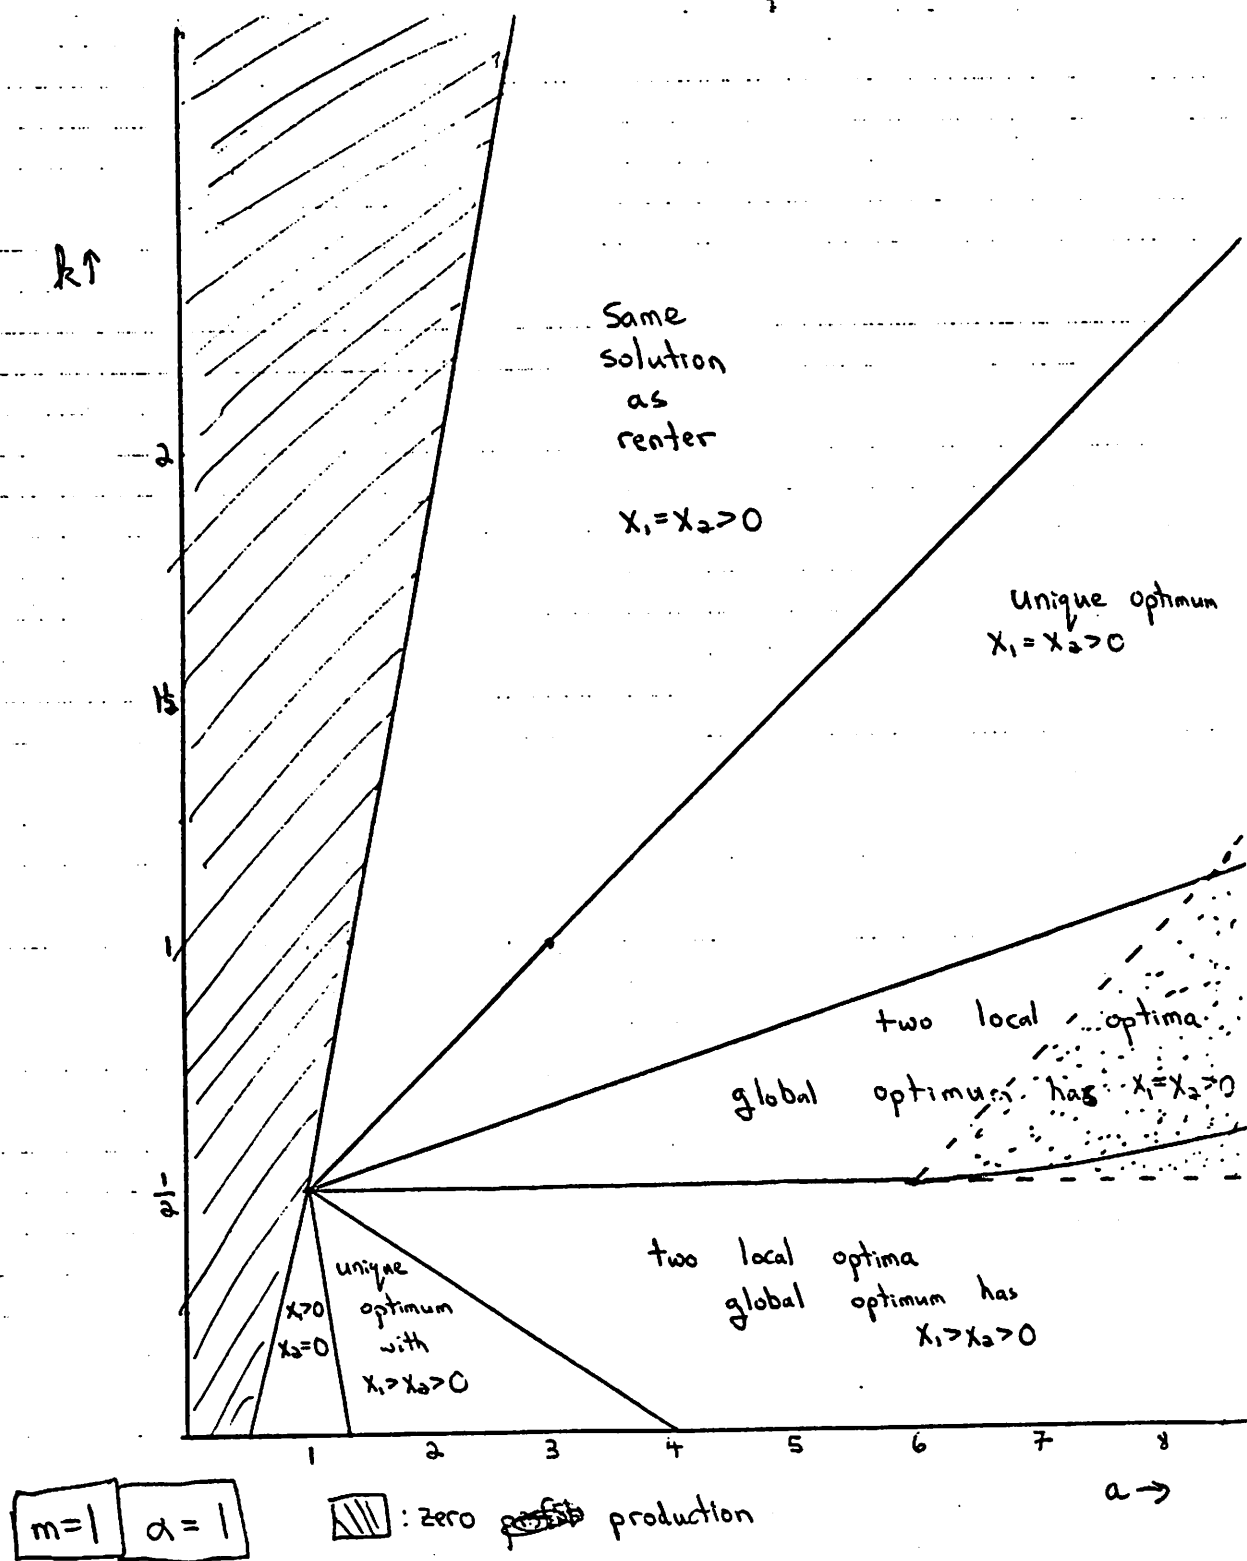 k↑
Same
solution
as
renter
x₁=x₂>0
2
unique optimum
x₁=x₂>0
1½
1
two local optima
global optimum has x₁=x₂>0
½
two local optima
global optimum has
x₁>x₂>0
unique
optimum
with
x₁>x₂>0
x₁>0
x₂=0
1 2 3 4 5 6 7 8
a→
m=1 α=1 : zero production